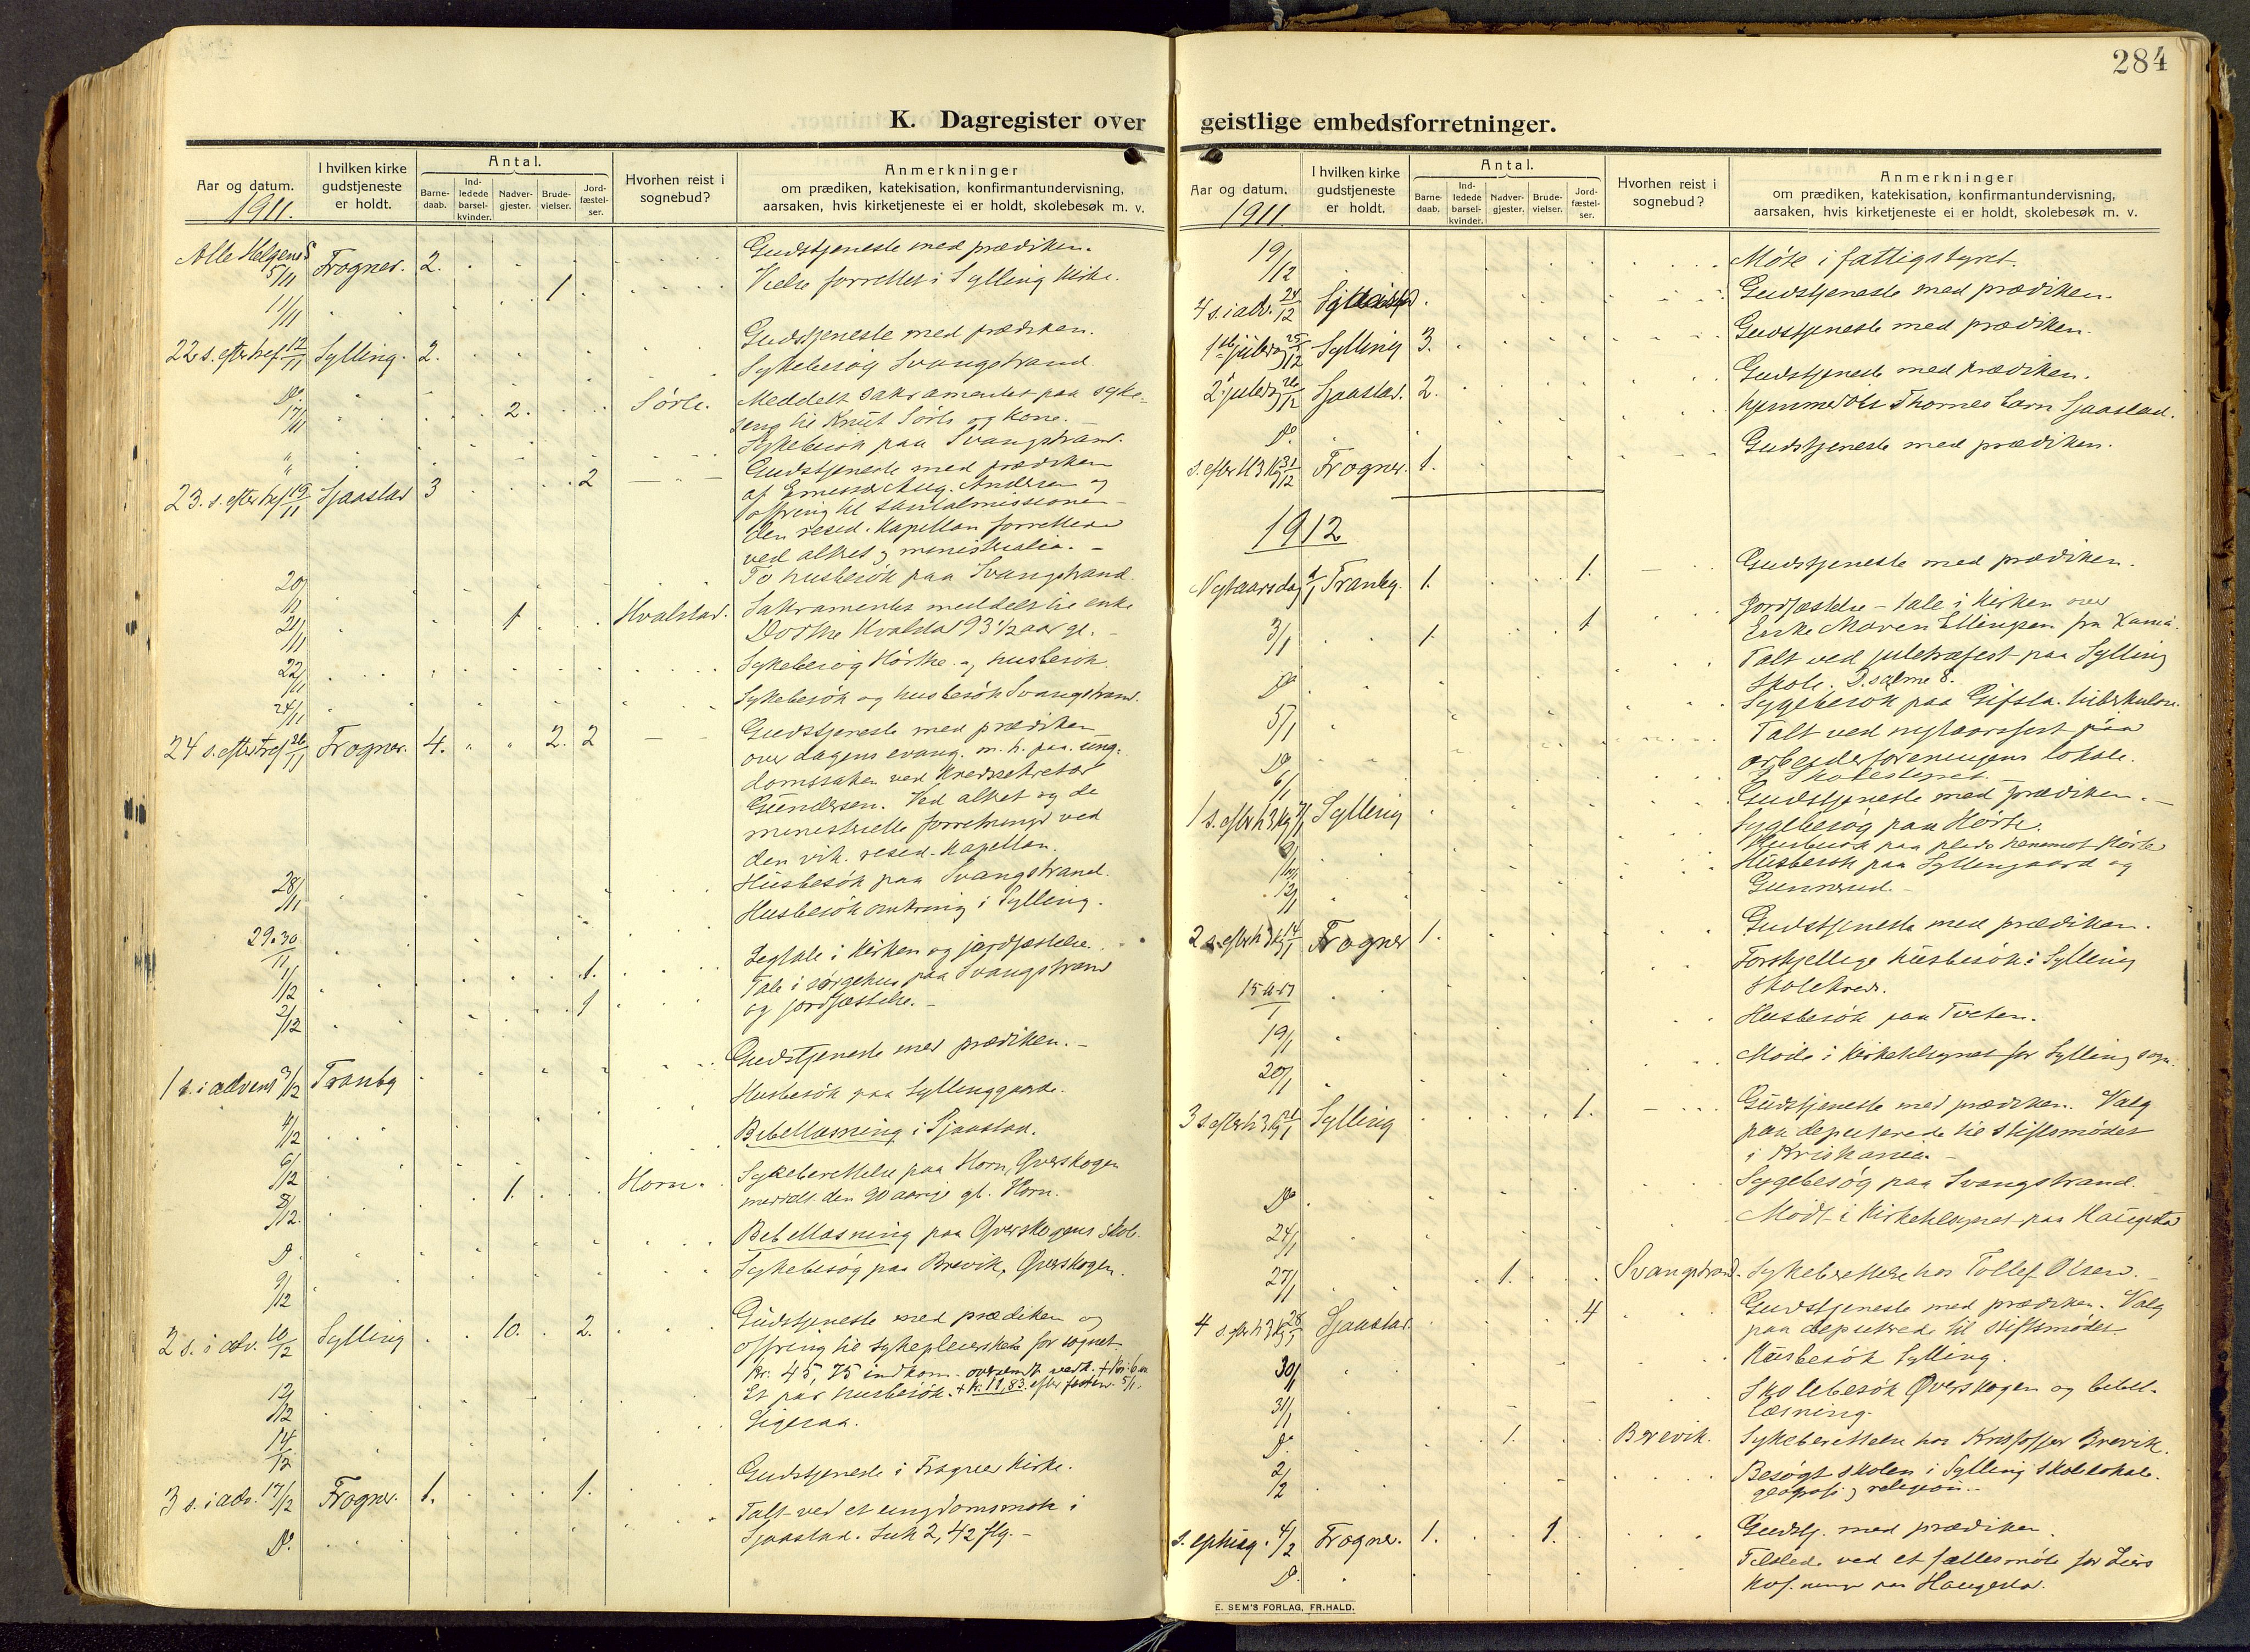 284
K. Dagregister over geistlige embedsforretninger.
Aar og datum.
1911.
I hvilken kirke gudstjeneste er holdt.
Antal.
Barne-daab.
Ind-ledede barsel-kvinder.
Nadver-gjester.
Brude-vielser.
Jord-fæstel-ser.
Hvorhen reist i sognebud?
Anmerkninger
om prædiken, katekisation, konfirmantundervisning,
aarsaken, hvis kirketjeneste ei er holdt, skolebesøk m. v.
Alle Helgens 5/11 Frogner. 2. Gudstjeneste med prædiken.
11/11 1 Vielse forrettet i Sylling Kirke.
22 s. efter tref 12/11 Sylling. 2. Gudstjeneste med prædiken.
Do. Sykebesøg Svangstrand.
17/11 2. Sørli. Meddelt sakramentet paa syke-
seng til Knut Sørli og kone.
" Sykebesøk paa Svangstrand.
23. s. efter tref 19/11 Sjaastad 3 2 Gudstjeneste med prædiken
af Aug. Andersen og
ofring til santalmissionen
den resid. kapellan forrettede
ved altret og ministralia. -
20/11 To husbesøk paa Svangstrand.
21/11 1 Hvalstad. Sakramentet meddelt til enke
Dorthe Hvalstad 93 1/2 aar gl. -
22/11 Sykebesøg Hørthe og husbesøk.
24/11 Sykebesøk og husbesøk Svangstrand.
24 s. efter tref 26/11 Frogner. 4. 2. 2 Gudstjeneste med prædiken
over dagens evang. m. h. paa ung-
domssaken ved Kredssekretær
Gundersen. Ved altret og de
ministerielle forretninger ved
den vik. resid. kapellan.
28/11 Husbesøk paa Svangstrand.
29.30/11 Husbesøk omkring i Sylling.
1/12 1. Ligtale i kirken og jordfæstelse.
2/12 1 Tale i sørgehus paa Svangstrand
og jordfæstelse. -
1 s. i advent 3/12 Tranby Gudstjeneste med prædiken. -
4/12 Husbesøk paa Syllinggaarde.
6/12 Bibellæsning i Sjaastad.
8/12. 1. Horn. Sykeberettelse paa Horn, Øverskogen
meddt. den 90 aarige gl. Horn.
D. Bibellæsning paa Øverskogens skole.
9/12 Sykebesøg paa Brevik, Øverskogen.
2 s. i adv. 10/12 Sylling 10. 2. Gudstjeneste med prædiken og
ofring til sykepleiersken for sognet
Kr. 45,75 indkom.
12/12 Et par husbesøk. + kr. 11,83 efter festen 5/1.
14/12 Ligesaa.
3 s. i adv. 17/12 Frogner. 1. 1. Gudstjeneste i Frogner kirke.
D. Talt ved et ungdomsmøte i
Sjaastad. Luk 2, 42 flg. -
Aar og datum.
1911.
I hvilken kirke gudstjeneste er holdt.
Antal.
Barne-daab.
Ind-ledede barsel-kvinder.
Nadver-gjester.
Brude-vielser.
Jord-fæstel-ser.
Hvorhen reist i sognebud?
Anmerkninger
om prædiken, katekisation, konfirmantundervisning,
aarsaken, hvis kirketjeneste ei er holdt, skolebesøk m. v.
19/12 Møte i fattigstyret.
4 s. i adv. 24/12 Gudstjeneste med prædiken.
1ste juledag 25/12 Sylling 3. Gudstjeneste med prædiken.
2 juledag 26/12 Sjaastad. 2. Gudstjeneste med prædiken.
Do. hjemmedøbt Thornes barn Sjaastad.
s. efter H3K 31/12 Frogner. 1. Gudstjeneste med prædiken.
1912
Nytaarsdag 1/1 Tranby. 1. 1. Gudstjeneste med prædiken.
3/1 1. 1 Jordfæstelse - tale i kirken over
Enke Maren Ellingsen fra
Do Talt ved juletræfest paa Sylling
skole. Psalme 8.
5/1 Sygebesøk paa Gifsta.
Do Talt ved nytaarsfest paa
arbeiderforeningens lokale.
6/1 Skolestyret.
1 s. efter h3kg 7/1 Sylling Gudstjeneste med prædiken. -
Sygebesøg paa Hørte.
Husbesøk paa Hørte
12/1 Husbesøk paa Syllinggaard og
Gunnerud. -
2 s. efter h3kg 14/1 Frogner 1. Gudstjeneste med prædiken.
15-16-17/1 Forskjellige husbesøk i Sylling
skolekreds.
19/1 Husbesøk paa Tveten.
20/1 Møde i kirketilsynet for Sylling sogn.
3 s. efter h3kg 21/1 Sylling 1. Gudstjeneste med prædiken. Valg
paa deputerede til stiftsmødet
i Kristiania. -
Do Sygebesøg paa Svangstrand.
24/1 Møde i kirketilsynet paa Haugestad
27/1 1. Svangstrand. Sykeberettelse hos Tollef Olsen. -
4 s. efter h3kg 28/1 Sjaastad. 4 Gudstjeneste med prædiken. Valg
paa deputerede til stiftsmødet.
30/1 Husbesøk Sylling.
31/1 Skolebesøk Øverskogen og bibel-
læsning.
D. 1. Brevik. Sykeberettelse hos Kristoffer Brevik.
2/2 Besøgt skolen i Sylling skolelokale.
geografi og religion. -
s. epting. 4/2 Frogner. 1. 1. Gudstj. med prædiken.
D. Tilstede ved et fællesmøte for Liers
paa Haugestad.
E. SEM'S FORLAG, FR.HALD.